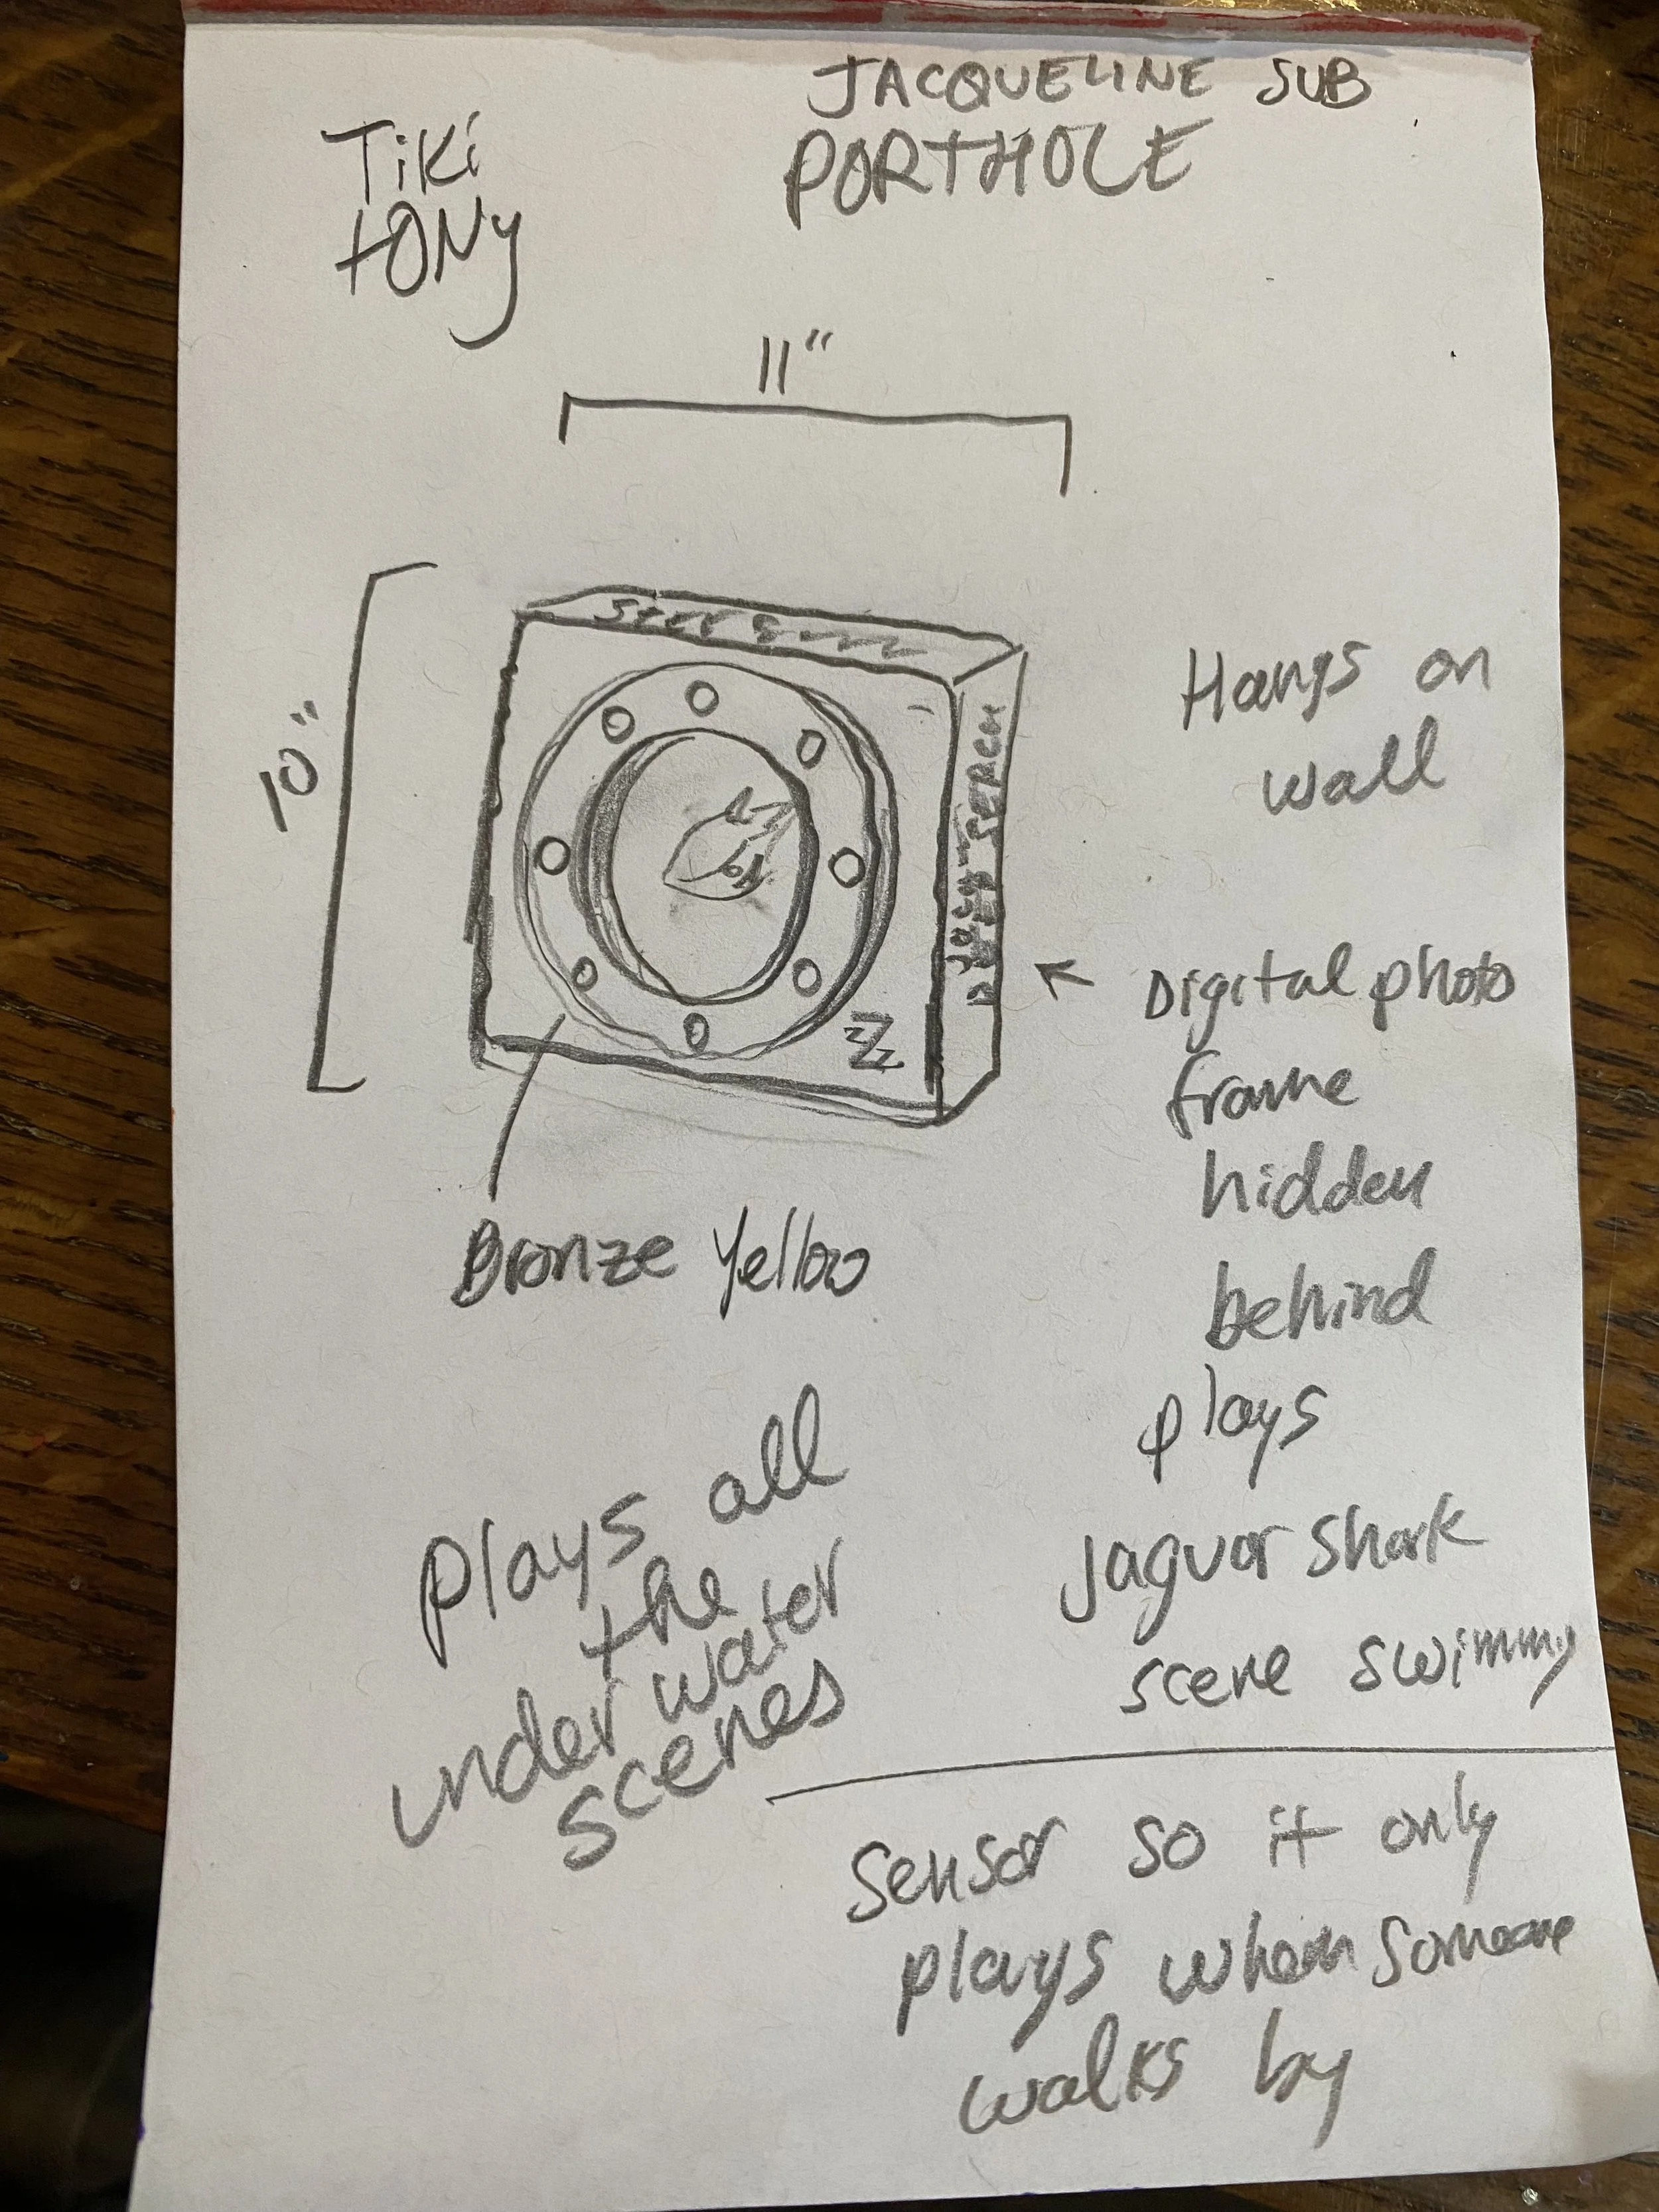 JACQUELINE SUB
PORTHOLE
Tiki
tONy
11"
10"
Hangs on
wall
Digital photo
frame
hidden
behind
plays
Jaguar shark
scene swimmy
Bronze Yellow
plays all
the
under water
scenes
Sensor so it only
plays when someone
walks by